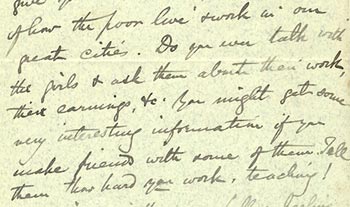 give y
of how the poor live & work in our
great cities. Do you ever talk with
the girls & ask them about their work,
their earnings, &c. You might get some
very interesting information if you
make friends with some of them. Tell
them how hard you work, teaching!